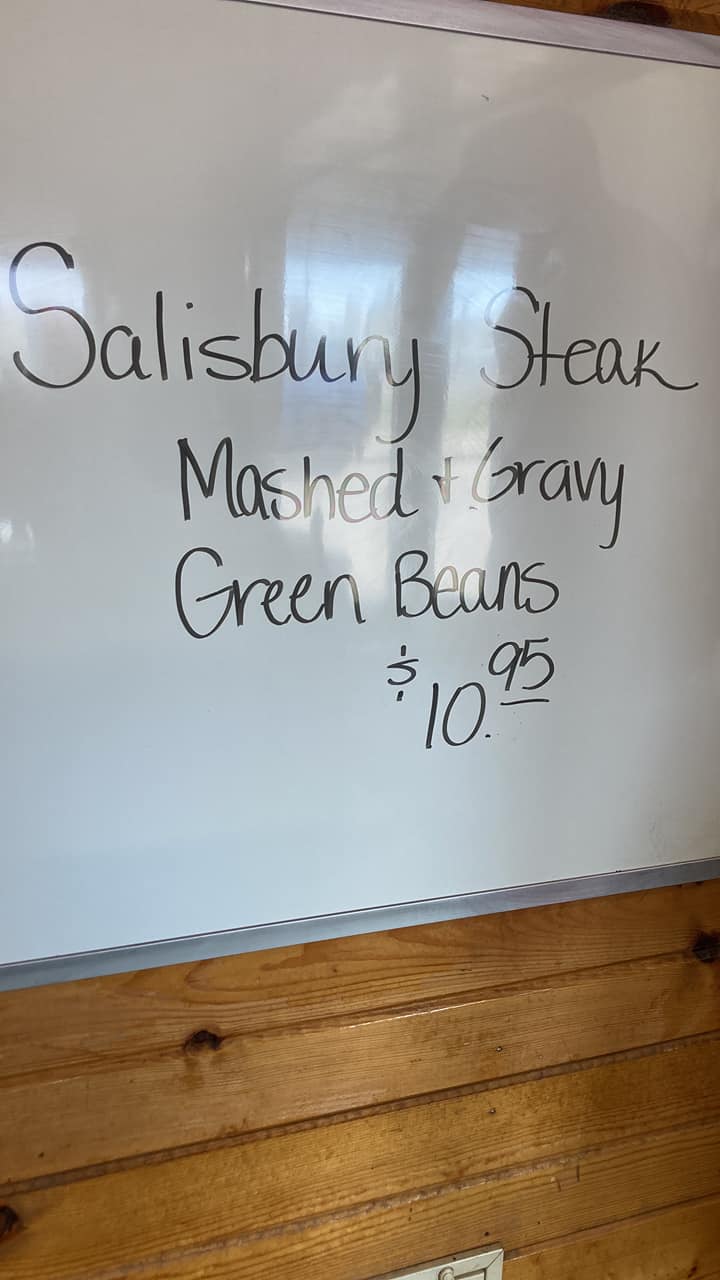 Salisbury Steak
Mashed + Gravy
Green Beans
$10.95